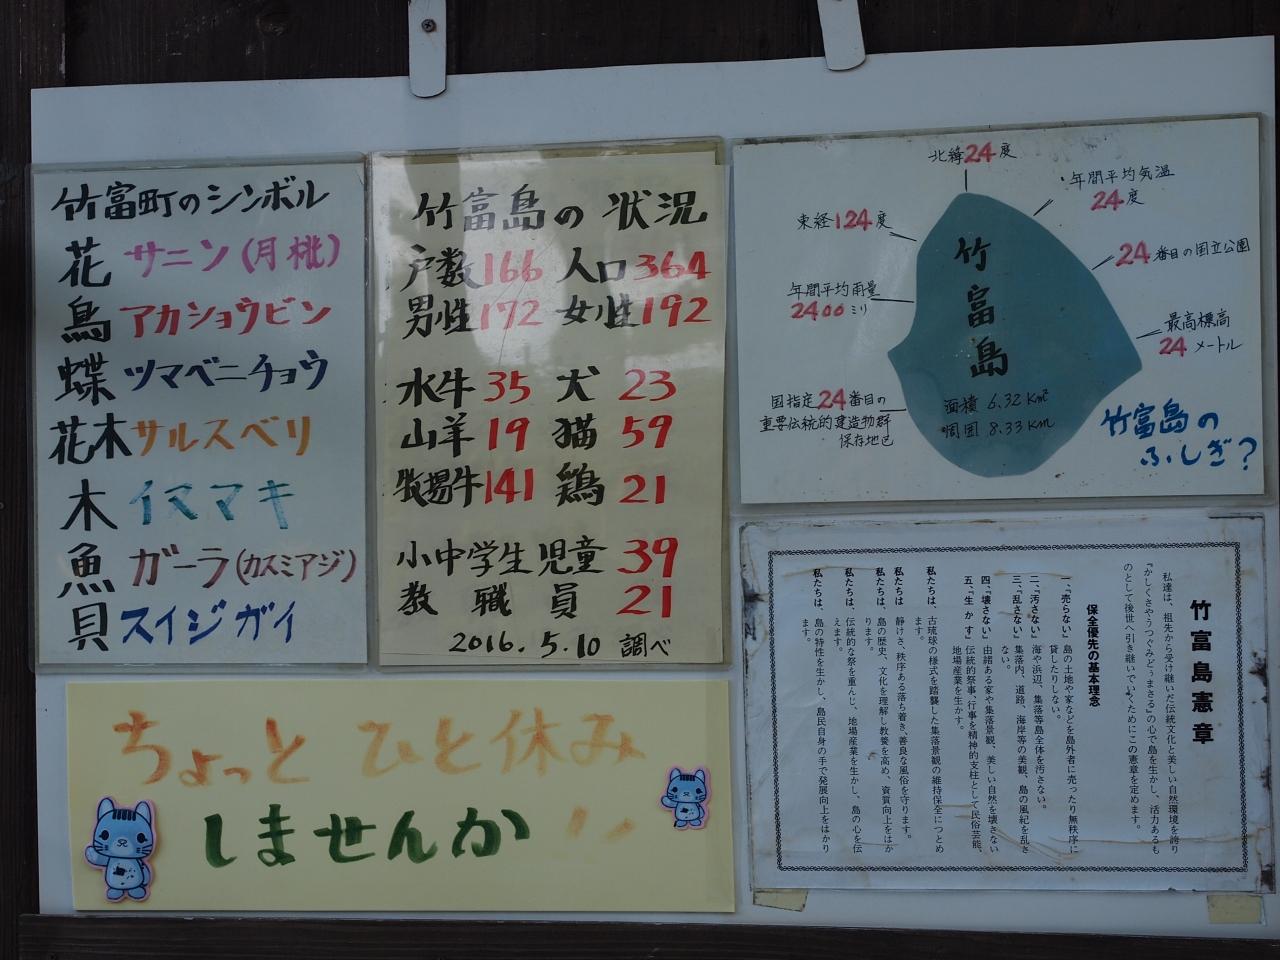 竹富町のシンボル
花 サニン(月桃)
鳥 アカショウビン
蝶 ツマベニチョウ
花木 サルスベリ
木 イヌマキ
魚 ガーラ(カスミアジ)
貝 スイジガイ
竹富島の状況
戸数166 人口364
男性172 女性192
水牛35 犬23
山羊19 猫59
牧場牛141 鶏21
小中学生児童39
教職員21
2016.5.10 調べ
北緯24度
年間平均気温
24度
東経124度
24番目の国立公園
年間平均雨量
2400ミリ
最高標高
24メートル
国指定24番目の
重要伝統的建造物群
保存地区
竹富島
面積 6.32Km²
周囲 8.33Km
竹富島の
ふしぎ?
ちょっと ひと休み
しませんか
竹富島憲章
私達は、祖先から受け継いだ伝統文化と美しい自然環境を誇り
『かしくさやうつぐみどぅまさる』の心で島を生かし、活力あるも
のとして後世へ引き継いでいくためにこの憲章を定めます。
保全優先の基本理念
一、『売らない』 島の土地や家などを島外者に売ったり無秩序に
貸したりしない。
二、『汚さない』 海や浜辺、集落等島全体を汚さない。
三、『乱さない』 集落内、道路、海岸等の美観、島の風紀を乱さ
ない。
四、『壊さない』 由緒ある家や集落景観、美しい自然を壊さない
五、『生かす』 伝統的祭事、行事を精神的支柱として民俗芸能、
地場産業を生かす。
私たちは、古琉球の様式を踏襲した集落景観の維持保全につとめ
ます。
私たちは 静けさ、秩序ある落ち着き、善良な風俗を守ります。
私たちは、島の歴史、文化を理解し教養を高め、資質向上をはか
ります。
私たちは、伝統的な祭を重んじ、地場産業を生かし、島の心を伝
えます。
私たちは、島の特性を生かし、島民自身の手で発展向上をはかり
ます。